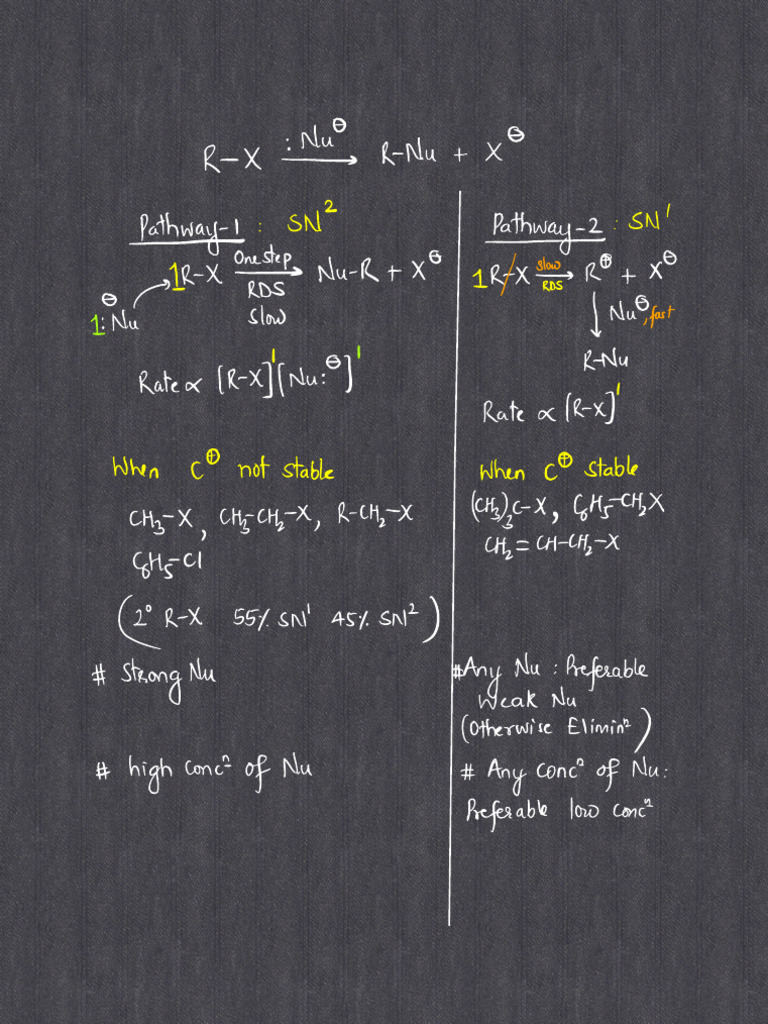 R-X :Nu⊖ → R-Nu + X⊖
Pathway-1 : SN²
1R-X One step → Nu-R + X⊖
RDS
slow
⊖
1:Nu
Rate ∝ [R-X]¹[Nu:⊖]¹
When C⊕ not stable
CH₃-X, CH₃-CH₂-X, R-CH₂-X
C₆H₅-Cl
(2° R-X 55% SN¹ 45% SN²)
# Strong Nu
# high concⁿ of Nu
Pathway-2 : SN¹
1 R-X slow → R⊕ + X⊖
RDS
↓ Nu⊖, fast
R-Nu
Rate ∝ [R-X]¹
When C⊕ stable
(CH₃)₃C-X, C₆H₅-CH₂X
CH₂=CH-CH₂-X
#Any Nu : Preferable
Weak Nu
(Otherwise Eliminⁿ)
# Any concⁿ of Nu:
Preferable low concⁿ